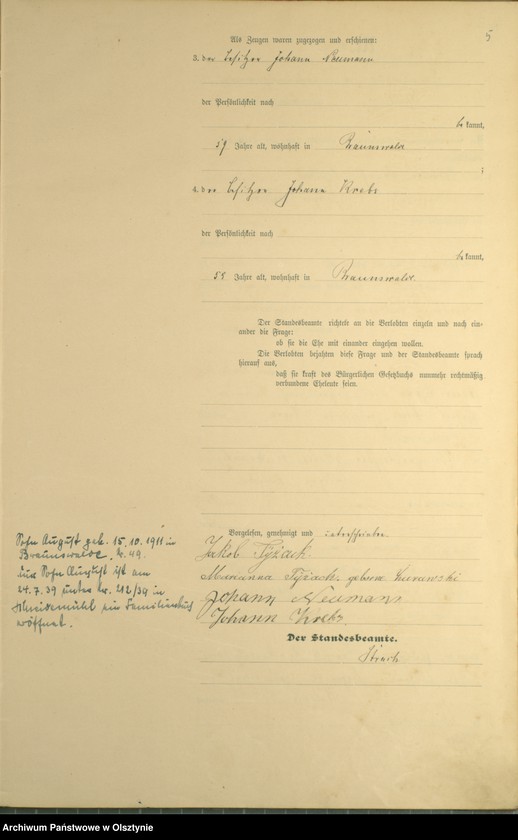 5
Als Zeugen waren zugezogen und erschienen:
3. der Besitzer Johann Neumann
der Persönlichkeit nach
be kannt,
59 Jahre alt, wohnhaft in Braunswalde
;
4. der Besitzer Johann Krebs
der Persönlichkeit nach
be kannt,
55 Jahre alt, wohnhaft in Braunswalde.
Der Standesbeamte richtete an die Verlobten einzeln und nach ein-
ander die Frage:
ob sie die Ehe mit einander eingehen wollen.
Die Verlobten bejahten diese Frage und der Standesbeamte sprach
hierauf aus,
daß sie kraft des Bürgerlichen Gesetzbuchs nunmehr rechtmäßig
verbundene Eheleute seien.
Vorgelesen, genehmigt und unterschrieben
Jakob Tyżack
Marianna Tyżack geborne Kurawski
Johann Neumann
Johann Krebs
Der Standesbeamte.
Sohn August geb. 15.10.1911 in
Braunswalde, Nr. 49.
Für Sohn August ist am
24.7.39 unter Nr. 212/39 in
Schneidemühl ein Familienbuch
eröffnet.
Archiwum Państwowe w Olsztynie